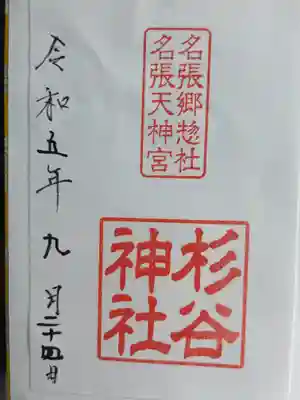 名張郷惣社
名張天神宮
杉谷
神社
令和五年九月二十四日